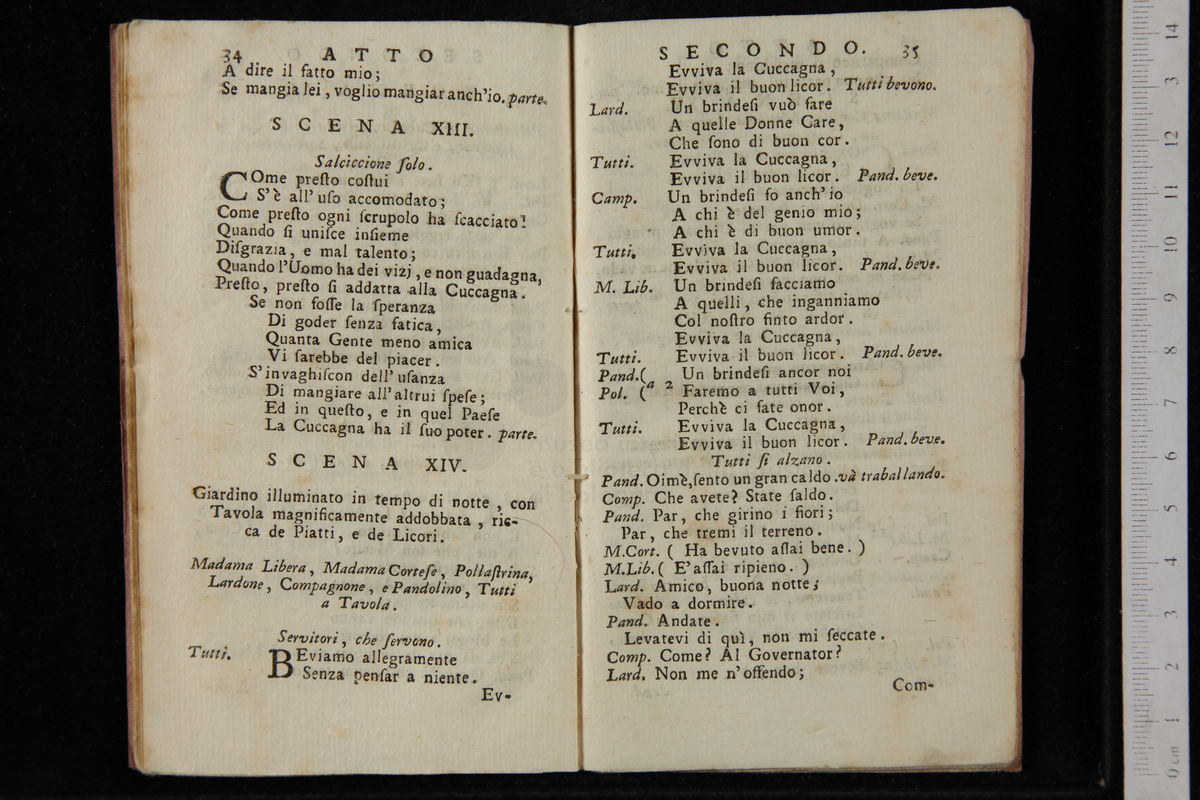 34 ATTO
A dire il fatto mio;
Se mangia lei, voglio mangiar anch'io. parte.
SCENA XIII.
Salciccione ſolo.
COme preſto coſtui
S'è all' uſo accomodato;
Come preſto ogni ſcrupolo ha ſcacciato!
Quando ſi uniſce inſieme
Diſgrazia, e mal talento;
Quando l'Uomo ha dei vizj, e non guadagna,
Preſto, preſto ſi addatta alla Cuccagna.
Se non foſſe la ſperanza
Di goder ſenza fatica,
Quanta Gente meno amica
Vi ſarebbe del piacer.
S'invaghiſcon dell' uſanza
Di mangiare all'altrui ſpeſe;
Ed in queſto, e in quel Paeſe
La Cuccagna ha il ſuo poter. parte.
SCENA XIV.
Giardino illuminato in tempo di notte, con
Tavola magnificamente addobbata, ric-
ca de Piatti, e de Licori.
Madama Libera, Madama Corteſe, Pollaſtrina,
Lardone, Compagnone, e Pandolino, Tutti
a Tavola.
Servitori, che ſervono.
Tutti. BEviamo allegramente
Senza penſar a niente.
Ev-
SECONDO. 35
Evviva la Cuccagna,
Evviva il buon licor. Tutti bevono.
Lard. Un brindeſi vuò fare
A quelle Donne Care,
Che ſono di buon cor.
Tutti. Evviva la Cuccagna,
Evviva il buon licor. Pand. beve.
Camp. Un brindeſi fo anch' io
A chi è del genio mio;
A chi è di buon umor.
Tutti. Evviva la Cuccagna,
Evviva il buon licor. Pand. beve.
M. Lib. Un brindeſi facciamo
A quelli, che inganniamo
Col noſtro finto ardor.
Evviva la Cuccagna,
Tutti. Evviva il buon licor. Pand. beve.
Pand.( Un brindeſi ancor noi
Pol. ( a 2 Faremo a tutti Voi,
Perchè ci fate onor.
Tutti. Evviva la Cuccagna,
Evviva il buon licor. Pand. beve.
Tutti ſi alzano.
Pand. Oimè, ſento un gran caldo. và traballando.
Comp. Che avete? State ſaldo.
Pand. Par, che girino i fiori;
Par, che tremi il terreno.
M.Cort. ( Ha bevuto aſſai bene. )
M.Lib. ( E' aſſai ripieno. )
Lard. Amico, buona notte;
Vado a dormire.
Pand. Andate.
Levatevi di quì, non mi ſeccate.
Comp. Come? Al Governator?
Lard. Non me n'offendo;
Com-
14
13
12
11
10
9
8
7
6
5
4
3
2
1
0 cm